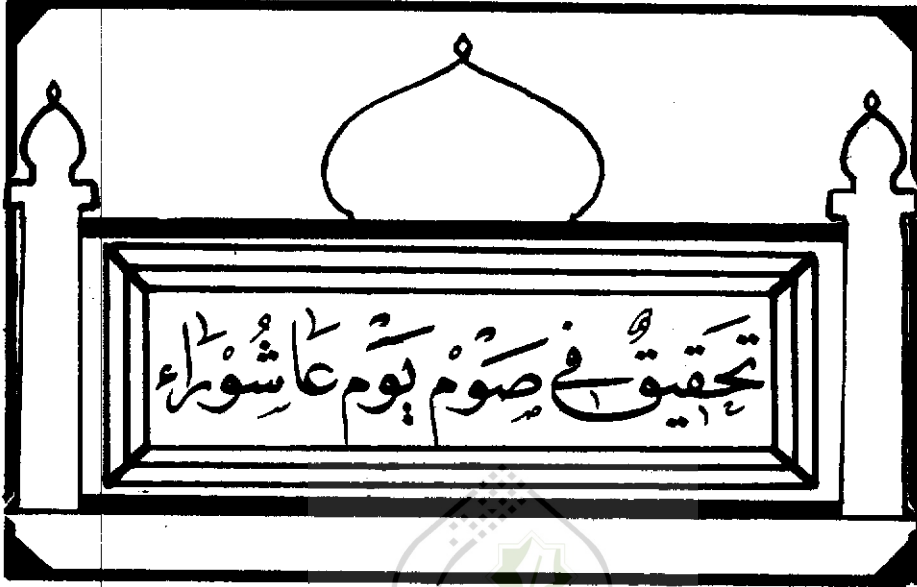 تحقيق في صوم يوم عاشوراء